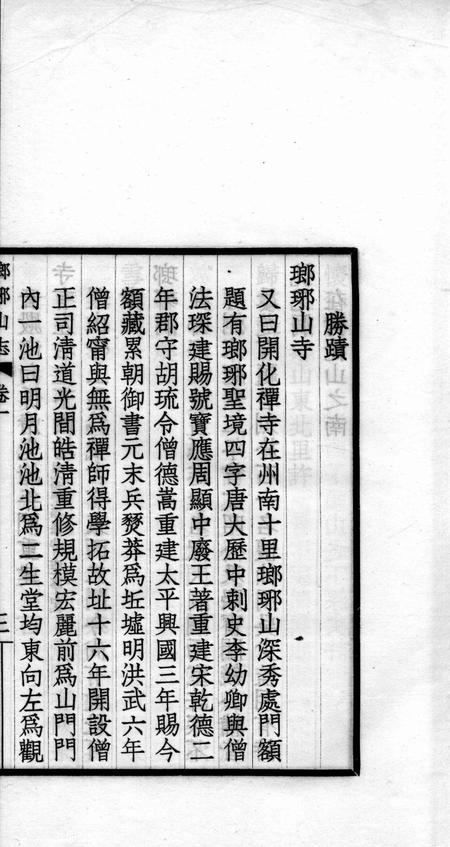 勝蹟
瑯琊山寺
又曰開化禪寺在州南十里瑯琊山深秀處門額
題有瑯琊聖境四字唐大歷中刺史李幼卿與僧
法琛建賜號寶應周顯中廢王著重建宋乾德二
年郡守胡琉令僧德嵩重建太平興國三年賜今
額藏累朝御書元末兵燹莽爲坵墟明洪武六年
僧紹甯與無爲禪師得學拓故址十六年開設僧
正司清道光間皓清重修規模宏麗前爲山門門
內一池曰明月池池北爲三生堂均東向左爲觀
瑯琊山志 卷一 三